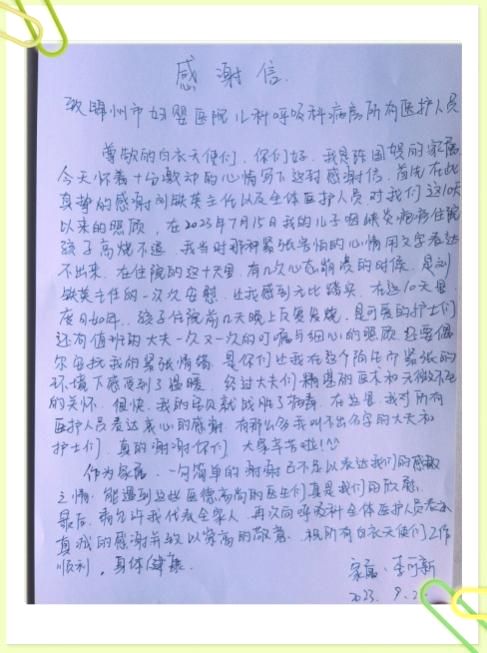 感谢信.
致锦州市妇婴医院儿科呼吸科病房所有医护人员
尊敬的白衣天使们, 你们好. 我是陈国娱的家属
今天怀着十分激动的心情写下这封感谢信. 首先在此
真挚的感谢刘敏英主任以及全体医护人员, 对我们这10天
以来的照顾, 在2023年7月15日我的儿子咽峡炎疱疹住院
孩子高烧不退, 我当时那种紧张害怕的心情用文字表达
不出来. 在住院的这十天里. 有几次心态崩溃的时候, 是刘
敏英主任的一次次安慰, 让我感到无比踏实. 在这10天里
度日如年, 孩子住院前几天晚上反复发烧, 是可爱的护士们
还有值班的大夫一次又一次的叮嘱与细心的照顾. 还要偶
尔安抚我的紧张情绪, 是你们让我在这个陌生而紧张的
环境下感受到了温暖. 经过大夫们精湛的医术和无微不至
的关怀, 很快, 我的宝贝就战胜了病毒. 在这里, 我对所有
医护人员表达衷心的感谢. 有那么多我叫不出名字的大夫和
护士们, 真的谢谢你们 大家辛苦啦!^^
作为家属, 一句简单的谢谢已不足以表达我们的感激
之情. 能遇到这些医德高尚的医生们真是我们的欣慰.
最后. 请允许我代表全家人, 再次向呼吸科全体医护人员表示
真诚的感谢并致以崇高的敬意. 祝所有白衣天使们工作
顺利, 身体健康.
家属: 李可新
2023. 9.2